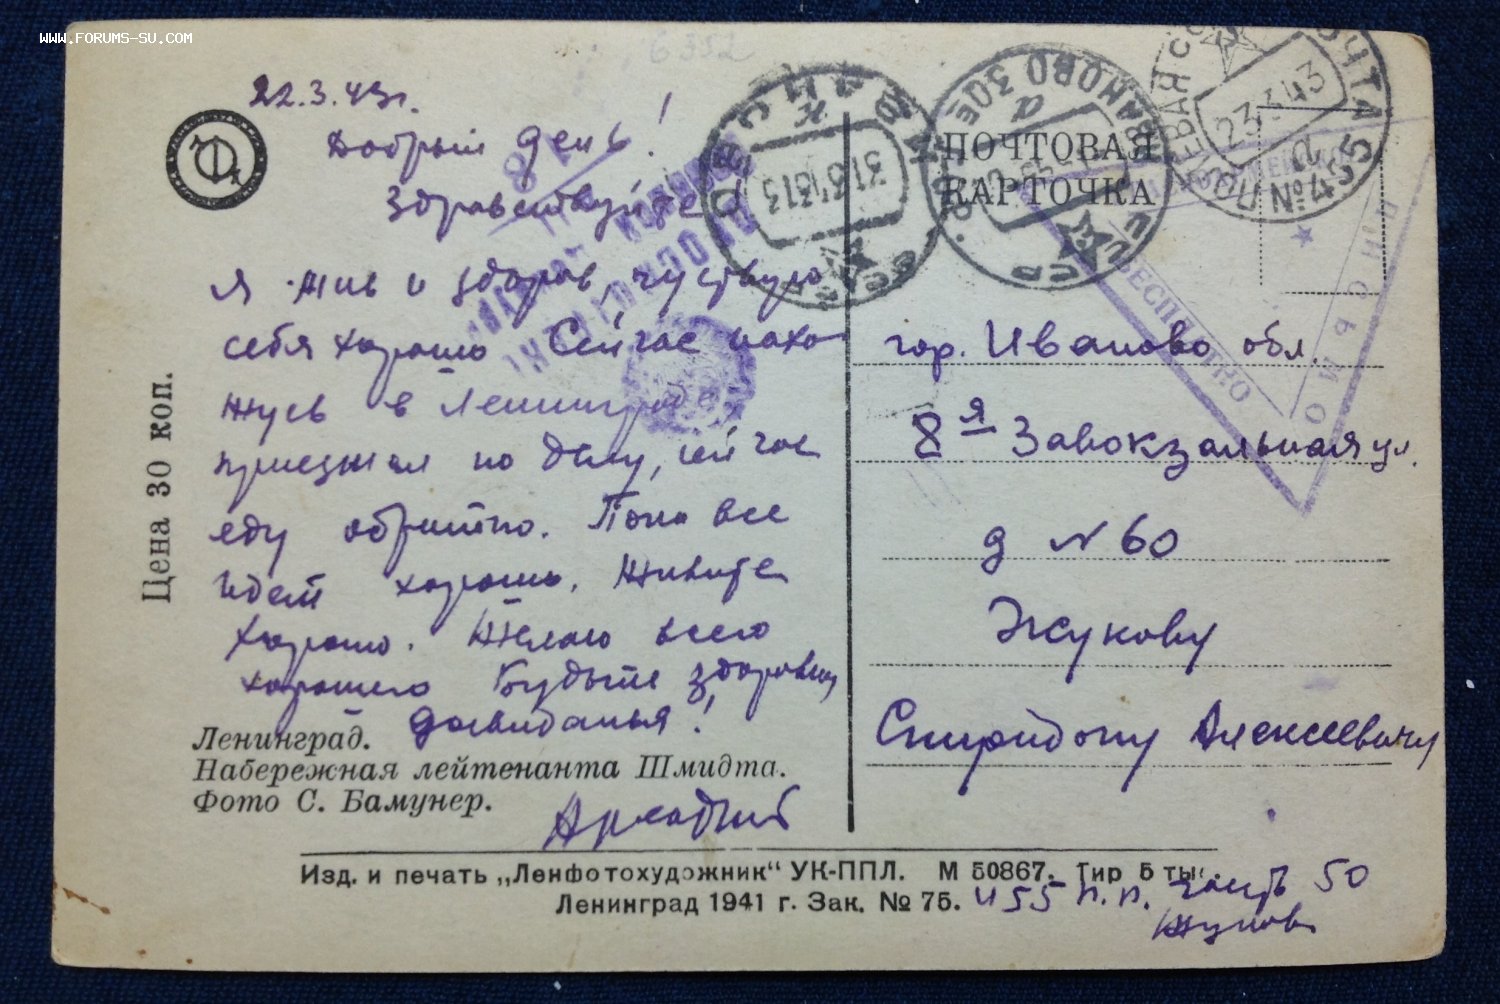 WWW.FORUMS-SU.COM
6352
22.3.43г.
Добрый день!
Здравствуйте!
Я жив и здоров, чуствую
себя хорошо Сейчас нахо
жусь в Ленинграде
приезжал по делу, сейчас
еду обратно. Пока все
идет хорошо. Живите
хорошо. Желаю всего
хорошего Будьте здоровы,
досвиданья!
Аркадий
Цена 30 коп.
Ленинград.
Набережная лейтенанта Шмидта.
Фото С. Бамунер.
ПОЧТОВАЯ
КАРТОЧКА
ИВАНОВО
31.3.43
23 3 43
ПОЛЕВАЯ ПОЧТА
БЕСПЛАТНО
ПИСЬМО
гор. Иваново обл.
8я Завокзальная ул.
д № 60
Жукову
Спиридону Алексеевичу
Изд. и печать „Ленфотохудожник“ УК-ППЛ. М 50867. Тир 5 тыс.
Ленинград 1941 г. Зак. № 75.
455 п.п. часть 50
Жуков